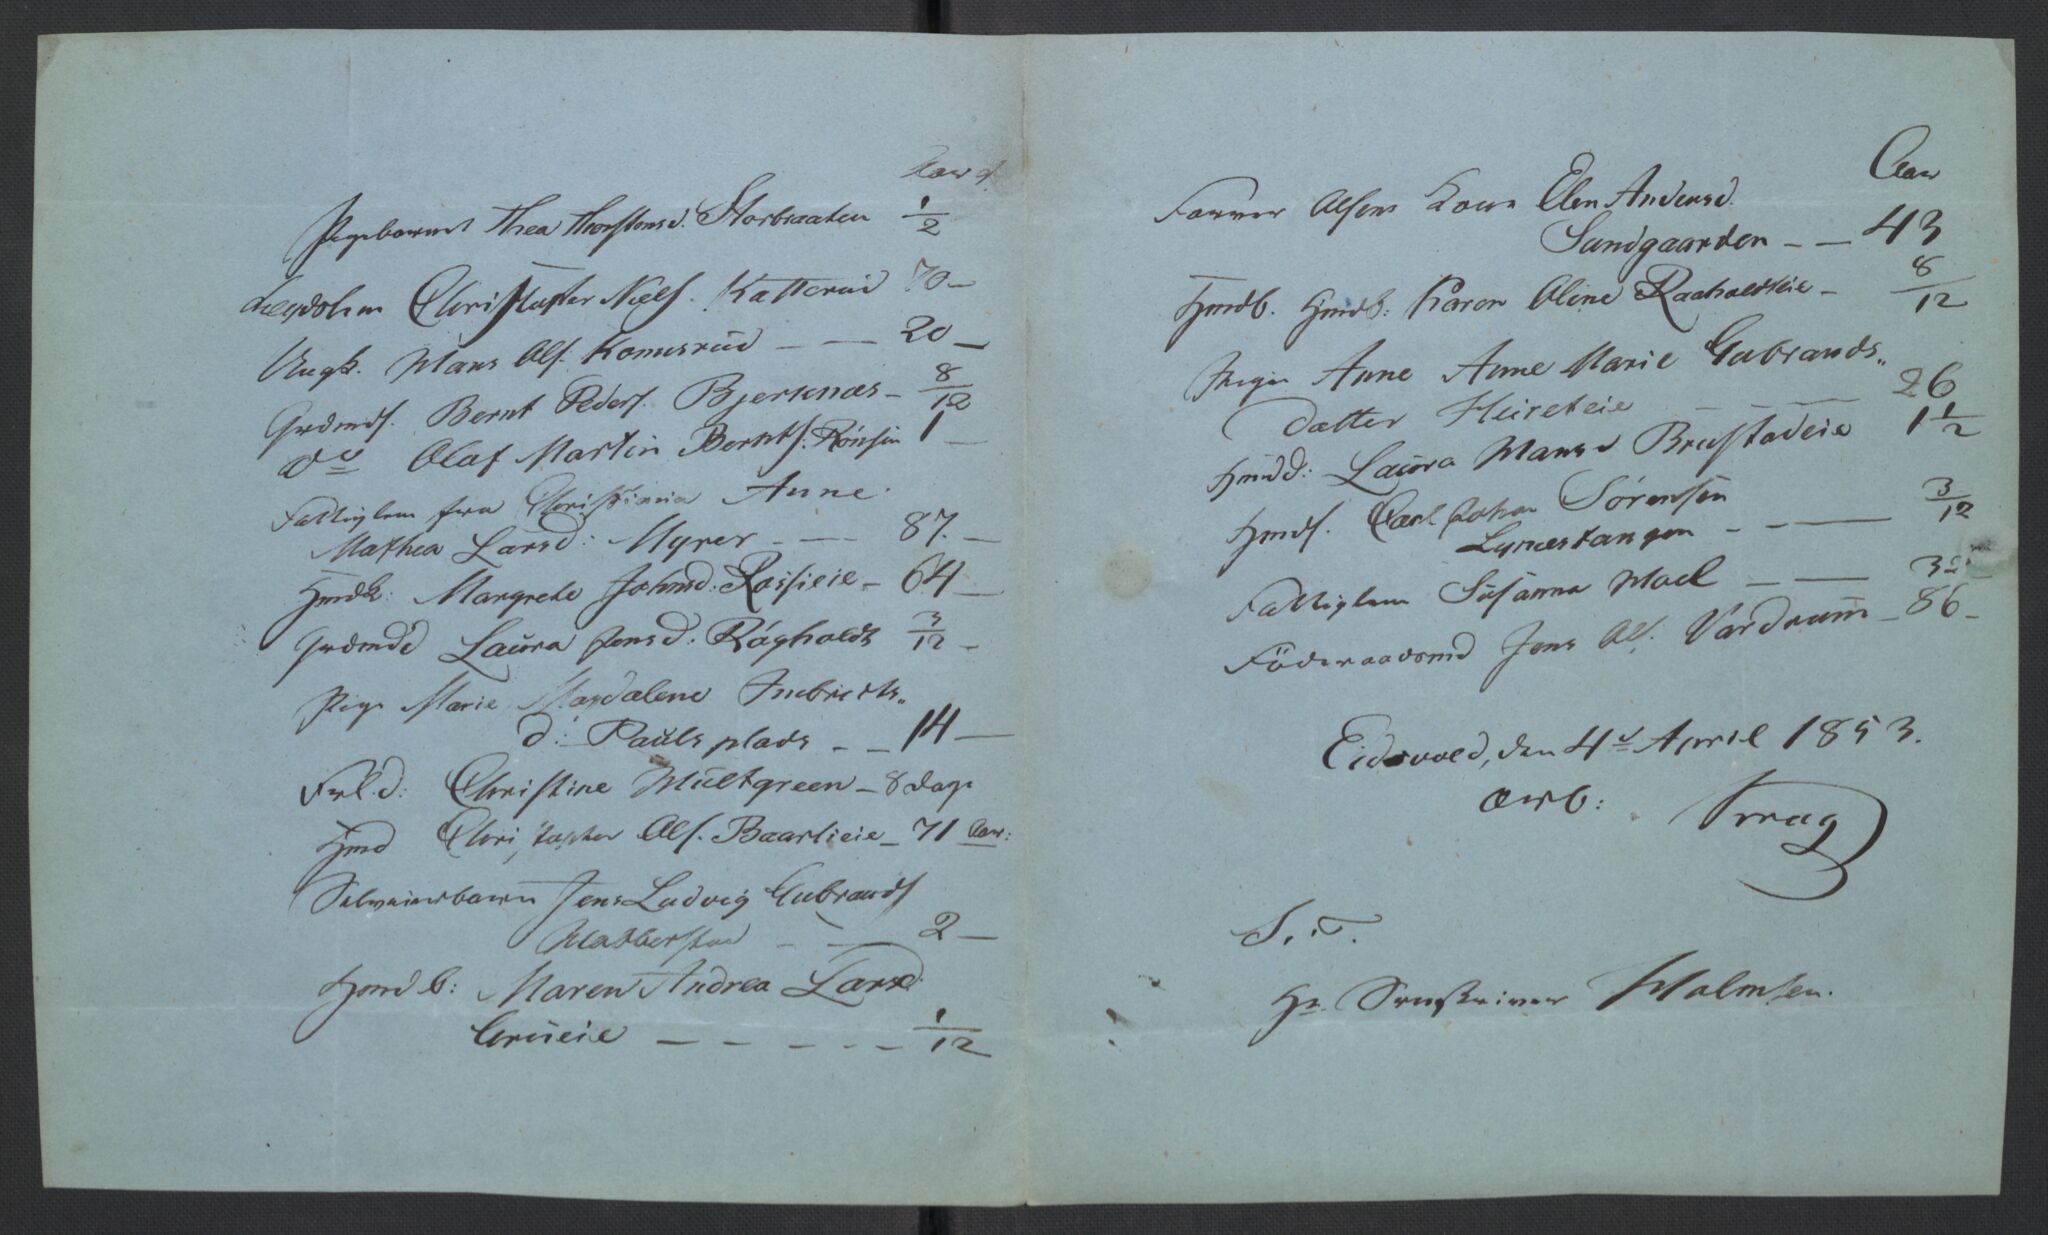 Aar
Pigebarnet Thea Thorstensd. Storbraaten 1/2
Lægdslem Christopher Niels. Katterud 70 –
Ungk. Hans Ols. Komusrud – — 20 –
Grdmds. Bernt Peders. Bjerknæs – 8/12
Do Olaf Martin Bernts: Rönsin 1 –
Fattiglem fra Christiania Anne
Mathea Larsd: Myrer – — 87. –
Hmdk: Margrete Johnsd: Rossieie – 64 –
Grdmdd Laura Jensd: Rågholdt 3/12 –
Pige Marie Magdalene Ingbrets„
d: Paulsplads – – 14 —
Frl.d: Christine Multgreen – 8 Dage
Hmd Christopher Ols. Baarlieie – 71 Aar:
Selveierbarn Jens Ludvig Gubrands
– — 2 –
Hmdb: Maren Andrea Larsd:
– – – – – 1/12
Aar
Farver Olsens Kone Elen Andersd.
Sundgaarden – — 43
Hmdb. Hmdb: Karen Oline Raaholdteie – 8/12
Pige Anne Anne Marie Gubrands„
datter Heireteie — — 26
Hmdd: Laura Hansd Brustadeie 1 1/2
Hmds. Carl Johan Sörensen
Lynæstangen – – — 3/12
Fattiglem Susanna Moel — — 32 –
Föderaadsmd Jens Ol. Vardrum – 86 –
Eidsvold, den 4de April 1853.
ærb:
Krag
S. T.
Hr. Sorenskriver Malmsen.